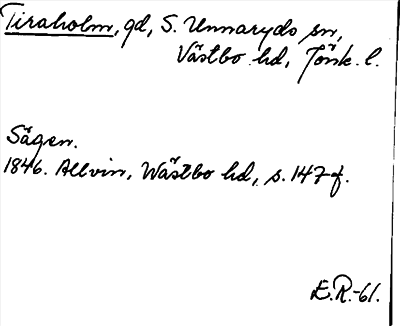 Tiraholm, gd, S. Unnaryds sn,
Västbo hd, Jönk. l.
Sägen.
1846. Allvin, Wästbo hd, s. 147 f.
E.R.-61.